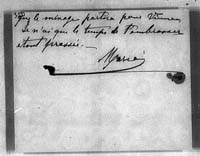 Puy le ménage partira pour Vienne,
je n'ai que le temps de t'embrasser
étant pressée. —
Maria